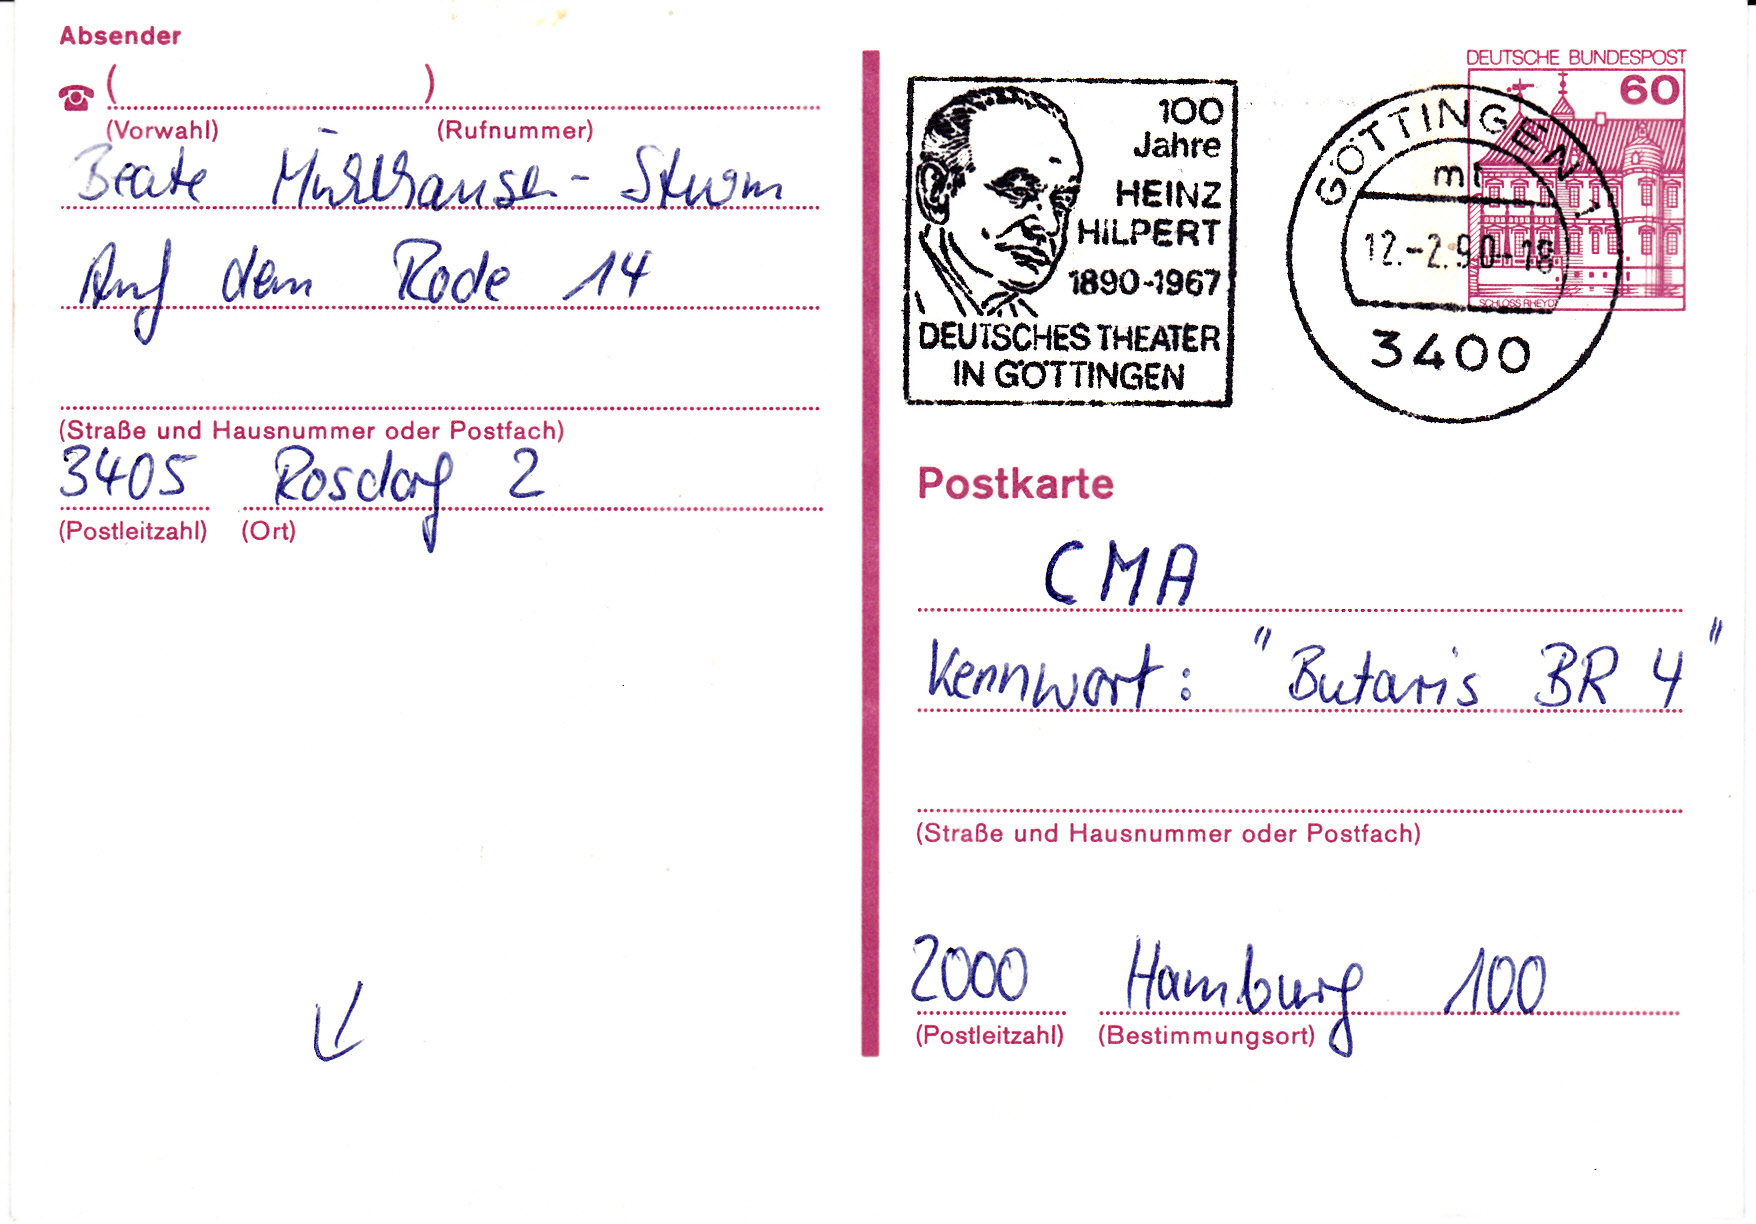 Absender
( )
(Vorwahl) (Rufnummer)
Beate Mühlhausen-Sturm
Auf dem Rode 14
(Straße und Hausnummer oder Postfach)
3405 Rosdorf 2
(Postleitzahl) (Ort)
100
Jahre
HEINZ
HILPERT
1890-1967
DEUTSCHES THEATER
IN GÖTTINGEN
DEUTSCHE BUNDESPOST
60
SCHLOSS RHEYDT
GÖTTINGEN 1
mt
12.-2.90-18
3400
Postkarte
CMA
Kennwort: "Butaris BR 4"
(Straße und Hausnummer oder Postfach)
2000 Hamburg 100
(Postleitzahl) (Bestimmungsort)